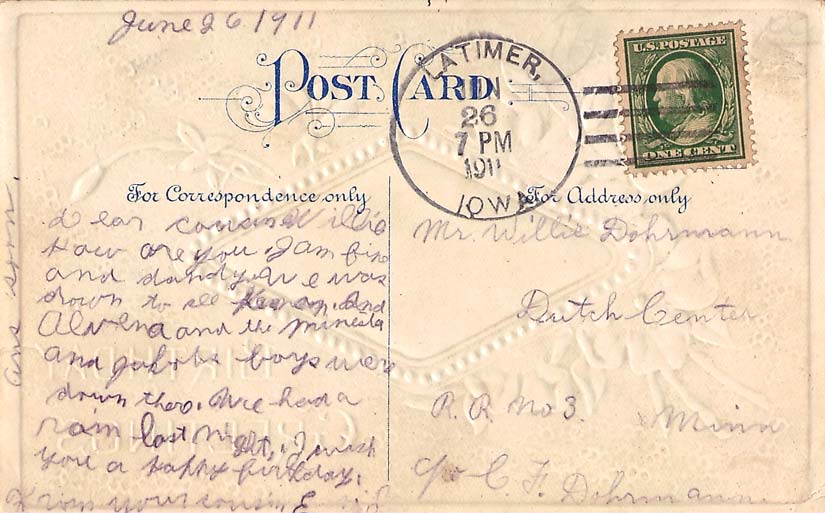 June 26 1911
POST CARD
LATIMER,
JUN
26
7 PM
1911
IOWA
U.S. POSTAGE
ONE CENT
For Correspondence only
Dear cousin Willie
How are you. I am fine
and dandy. We was
down to see and
Alvena and the Minesta
and jakobs boys were
down thero. We had a
rain last night, I wish
you a happy birthday.
From your cousin
ans soon.
For Address only
Mr. Willie Dohrmann
Dutch Center
R.R. No 3. Minn
c/o C F. Dohrmann
BIRTHDAY
GREETINGS